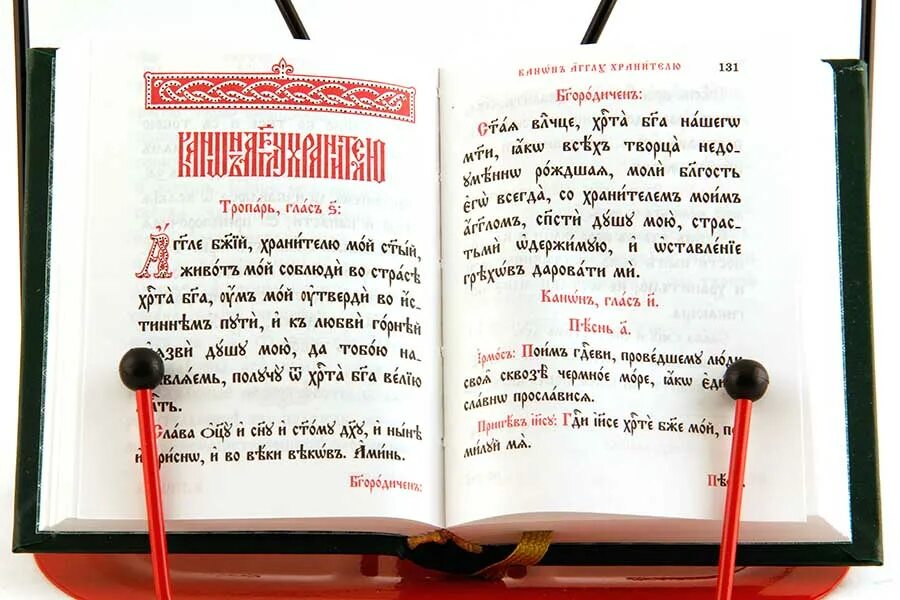 КАНѠНЪ А҆́ГГЛꙊ ХРАНИ́ТЕЛЮ
Тропа́рь, гла́съ ѕ҃:
А҆́ггле бж҃їй, храни́телю мо́й ст҃ы́й,
живо́тъ мо́й соблюдѝ во стра́сѣ
хрⷭ҇та̀ бг҃а, ᲂу҆́мъ мо́й ᲂу҆твердѝ во и҆́с_
тиннѣмъ пꙋтѝ, и҆ къ любвѝ го́рнѣй
дꙋ́шꙋ мою̀, да тобо́ю на_
полꙋчꙋ̀ ѿ хрⷭ҇та̀ бг҃а ве́лїю
Сла́ва ѻ҆ц҃ꙋ̀ и҆ сн҃ꙋ и҆ ст҃о́мꙋ дх҃ꙋ, и҆ ны́нѣ
и҆ во вѣ́ки вѣкѡ́въ. А҆ми́нь.
Бг҃оро́диченъ:
КАНѠ́НЪ А҆́ГГЛꙊ ХРАНИ́ТЕЛЮ 131
Бг҃оро́диченъ:
Ст҃а́ѧ влⷣчце, хрⷭ҇та̀ бг҃а на́шегѡ
мт҃и, ꙗ҆́кѡ всѣ́хъ творца̀ недо_
ꙋмѣ́ннѡ ро́ждшаѧ, молѝ бл҃гость
є҆гѡ̀ всегда̀, со храни́телемъ мои́мъ
а҆́гг҃ломъ, сп҃стѝ дꙋ́шꙋ мою̀, страс_
тьмѝ ѡ҆держи́мꙋю, и҆ ѡ҆ставле́нїе
грѣхѡ́въ дарова́ти мѝ.
Канѡ́нъ, гла́съ и҃.
Пѣ́снь а҃.
І҆рмо́съ: Пои́мъ гдⷭ҇еви, прове́дшемꙋ лю́ди
своѧ̑ сквозѣ̀ чермно́е мо́ре, ꙗ҆́кѡ
сла́внѡ просла́висѧ.
Припѣ́въ і҆и҃сꙋ: Гдⷭ҇и і҆и҃се хрⷭ҇тѐ бж҃е мо́й,
ми́лꙋй мѧ̀.